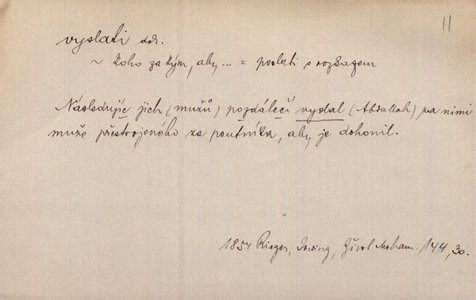 11
vyslati dok.
~ koho za kým, aby ... = poslati s rozkazem
Následujíc jich (mužů) pozdáleči vyslal (Abdallah) za nimi
muže přestrojeného za poutníka, aby je dohonil.
1854 Rieger, Irving, Život Moham. 144, 30.